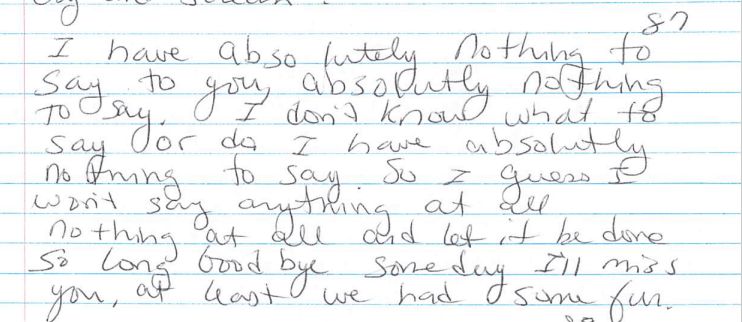 87
I have absolutely nothing to
say to you, absolutly nothing
To say. I don't know what to
say or do I have absolutly
nothing to say. So I guess I
won't say anything at all
nothing at all and let it be done
So long Good bye someday I'll miss
you, at least we had some fun.